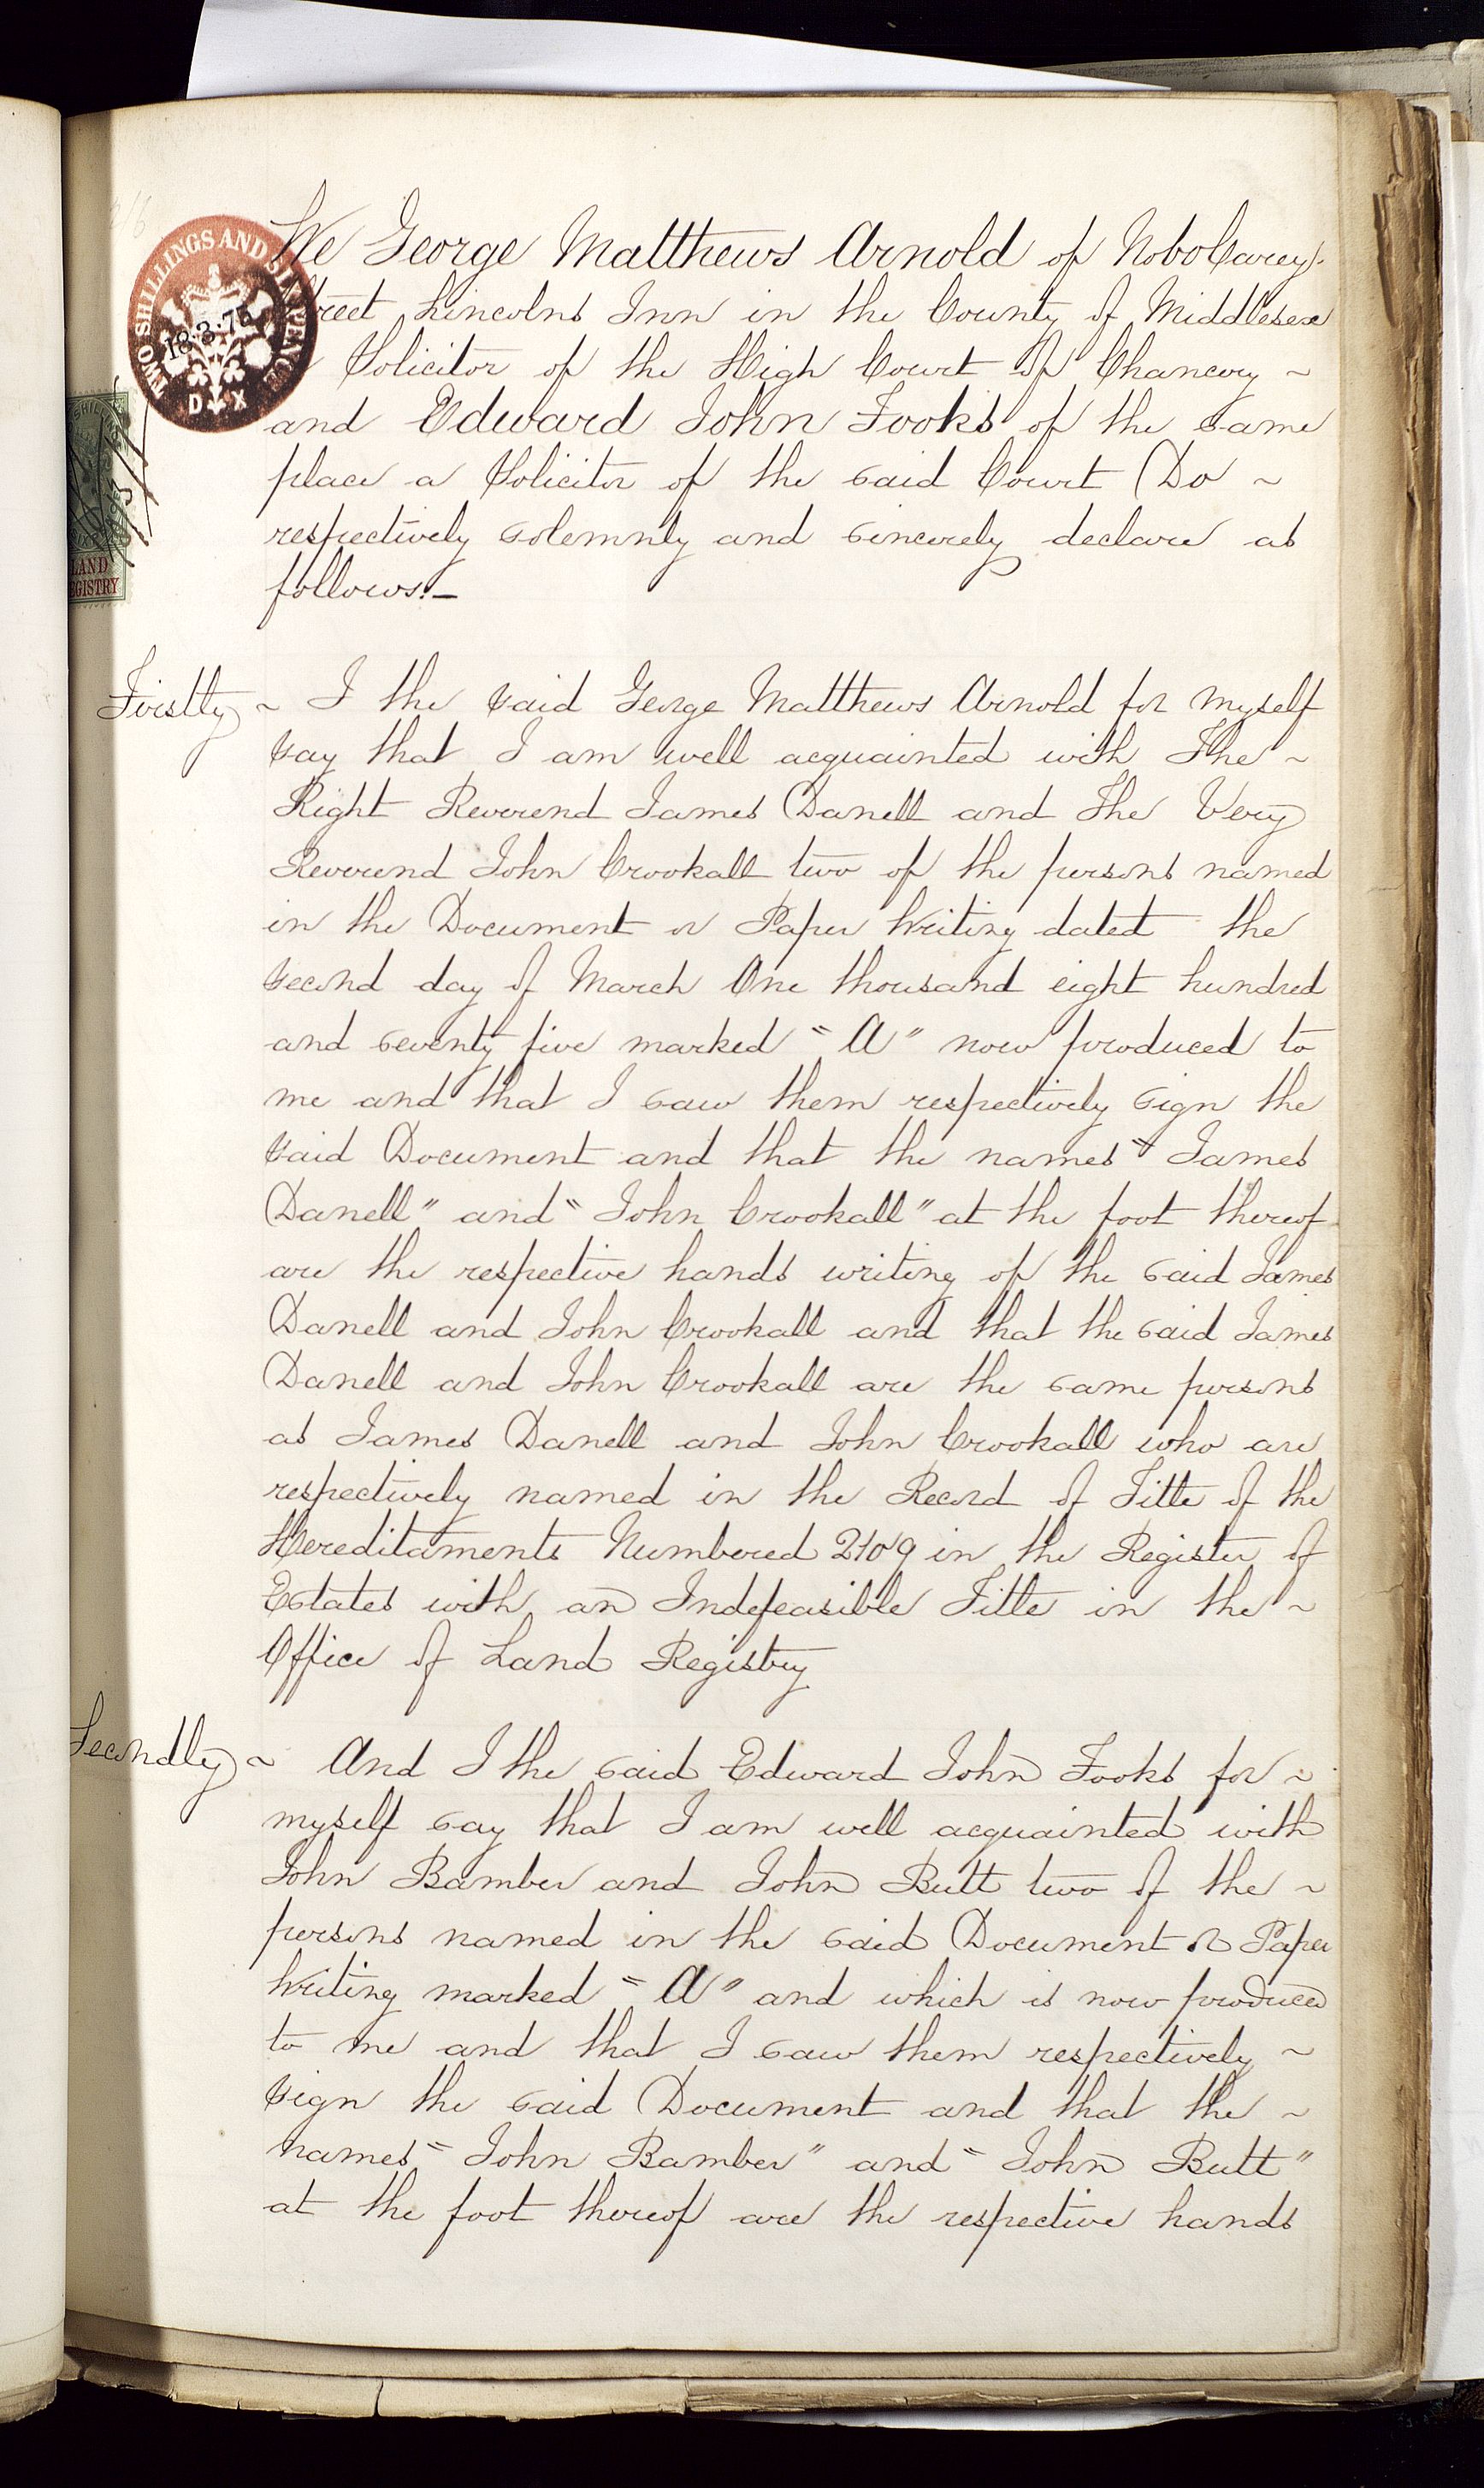 TWO SHILLINGS AND SIXPENCE
18.3.75
D X
LAND
REGISTRY
We George Matthews Arnold of No 60 Carey
Street Lincolns Inn in the County of Middlesex
Solicitor of the High Court of Chancery ~
and Edward John Fooks of the same
place a Solicitor of the said Court Do ~
respectively solemnly and sincerely declare as
follows:—
Firstly ~ I the said George Matthews Arnold for myself
say that I am well acquainted with The ~
Right Reverend James Danell and The Very
Reverend John Crookall two of the persons named
in the Document or Paper Writing dated the
second day of March One thousand eight hundred
and seventy five marked "A" now produced to
me and that I saw them respectively sign the
said Document and that the names "James
Danell" and "John Crookall" at the foot thereof
are the respective hands writing of the said James
Danell and John Crookall and that the said James
Danell and John Crookall are the same persons
as James Danell and John Crookall who are
respectively named in the Record of Title of the
Hereditaments Numbered 2109 in the Register of
Estates with an Indefeasible Title in the ~
Office of Land Registry
Secondly ~ And I the said Edward John Fooks for ~
myself say that I am well acquainted with
John Bamber and John Butt two of the ~
persons named in the said Document or Paper
Writing marked "A" and which is now produced
to me and that I saw them respectively ~
sign the said Document and that the ~
names "John Bamber" and "John Butt"
at the foot thereof are the respective hands